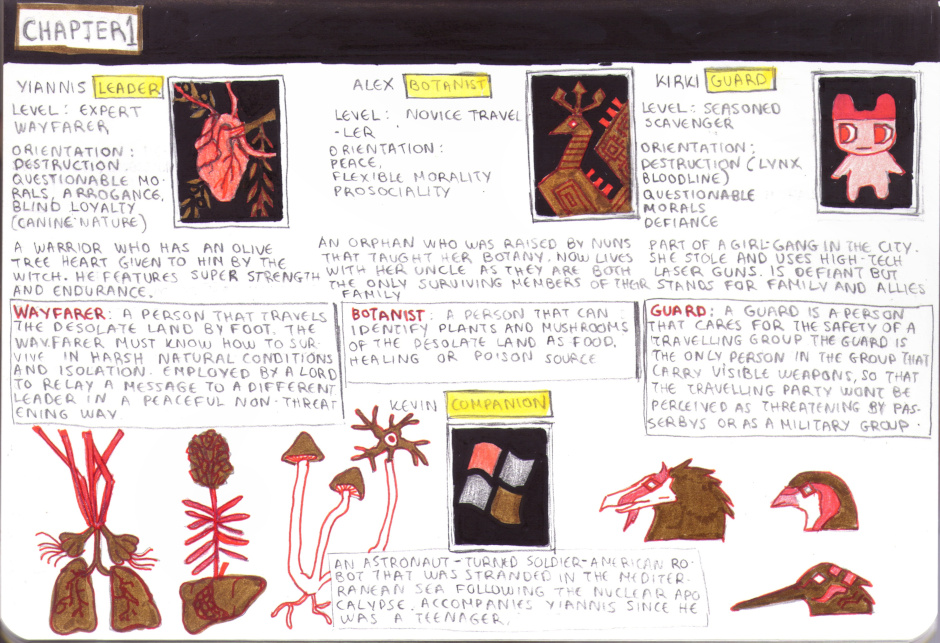 CHAPTER 1
YIANNIS LEADER
LEVEL: EXPERT
WAYFARER
ORIENTATION:
DESTRUCTION
QUESTIONABLE MO-
RALS, ARROGANCE,
BLIND LOYALTY
(CANINE NATURE)
A WARRIOR WHO HAS AN OLIVE
TREE HEART GIVEN TO HIM BY THE
WITCH. HE FEATURES SUPER STRENGTH
AND ENDURANCE.
ALEX BOTANIST
LEVEL: NOVICE TRAVEL
-LER
ORIENTATION:
PEACE,
FLEXIBLE MORALITY
PROSOCIALITY
AN ORPHAN WHO WAS RAISED BY NUNS
THAT TAUGHT HER BOTANY. NOW LIVES
WITH HER UNCLE AS THEY ARE BOTH
THE ONLY SURVIVING MEMBERS OF THEIR
FAMILY
KIRKI GUARD
LEVEL: SEASONED
SCAVENGER
ORIENTATION:
DESTRUCTION (LYNX
BLOODLINE)
QUESTIONABLE
MORALS
DEFIANCE
PART OF A GIRL-GANG IN THE CITY.
SHE STOLE AND USES HIGH-TECH
LASER GUNS. IS DEFIANT BUT
STANDS FOR FAMILY AND ALLIES
WAYFARER: A PERSON THAT TRAVELS
THE DESOLATE LAND BY FOOT. THE
WAYFARER MUST KNOW HOW TO SUR-
VIVE IN HARSH NATURAL CONDITIONS
AND ISOLATION. EMPLOYED BY A LORD
TO RELAY A MESSAGE TO A DIFFERENT
LEADER IN A PEACEFUL NON-THREAT
ENING WAY.
BOTANIST: A PERSON THAT CAN
IDENTIFY PLANTS AND MUSHROOMS
OF THE DESOLATE LAND AS FOOD,
HEALING OR POISON SOURCE
GUARD: A GUARD IS A PERSON
THAT CARES FOR THE SAFETY OF A
TRAVELLING GROUP THE GUARD IS
THE ONLY PERSON IN THE GROUP THAT
CARRY VISIBLE WEAPONS, SO THAT
THE TRAVELLING PARTY WONT BE
PERCEIVED AS THREATENING BY PAS-
SERBYS OR AS A MILITARY GROUP.
KEVIN COMPANION
AN ASTRONAUT-TURNED SOLDIER-AMERICAN RO-
BOT THAT WAS STRANDED IN THE MEDITER-
RANEAN SEA FOLLOWING THE NUCLEAR APO
CALYPSE. ACCOMPANIES YIANNIS SINCE HE
WAS A TEENAGER.